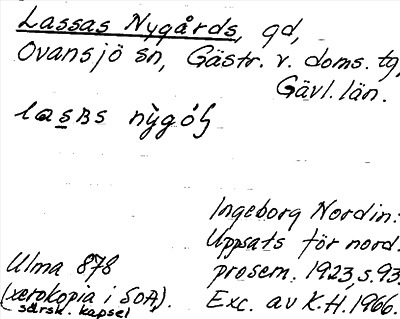 Lassas Nygårds, gd,
Ovansjö sn, Gästr. v. doms. tg,
Gävl. län.
Ingeborg Nordin:
Uppsats för nord.
prosem. 1923, s. 93.
Exc. av K.H. 1966.
Ulma 878
(xerokopia i SOA).
särsk. kapsel